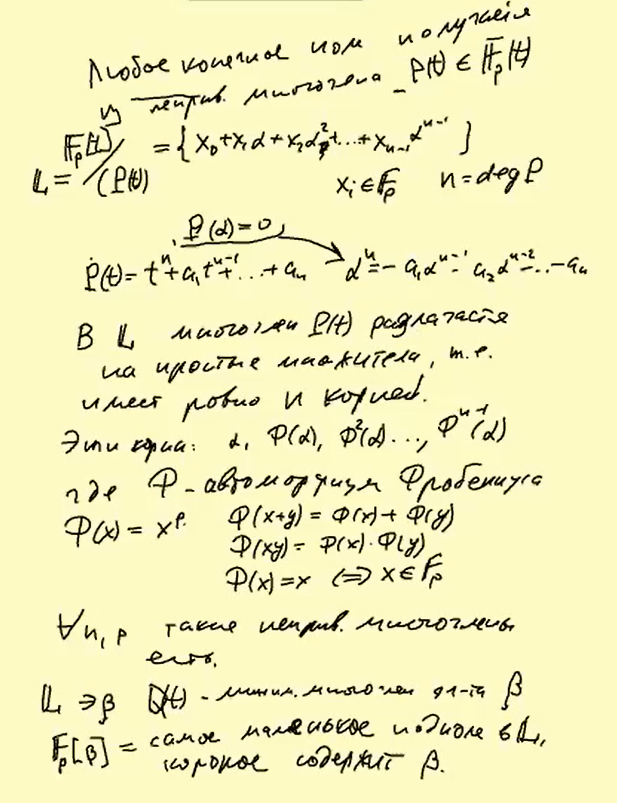 Любое конечное поле получается
из неприв. многочлена P(t) ∈ F̄ₚ[t]
L = Fₚ[t]/(P(t)) = { x₀+x₁α+x₂α²+...+xₙ₋₁αⁿ⁻¹ }
xᵢ ∈ Fₚ n = deg P
P(α)=0,
P(t) = tⁿ+a₁tⁿ⁻¹+...+aₙ αⁿ = -a₁αⁿ⁻¹ - a₂αⁿ⁻² - ... - aₙ
В L многочлен P(t) разлагается
на простые множители, т.е.
имеет ровно n корней.
Эти корни: α, Φ(α), Φ²(α)..., Φⁿ⁻¹(α)
где Φ - автоморфизм Фробениуса
Φ(x) = xᵖ. Φ(x+y) = Φ(x) + Φ(y)
Φ(xy) = Φ(x)·Φ(y)
Φ(x) = x ⟺ x ∈ Fₚ
∀n, p такие неприв. многочлены
есть.
L ∋ β Q(t) - миним. многочлен эл-та β
Fₚ[β] = самое маленькое подполе в L,
которое содержит β.